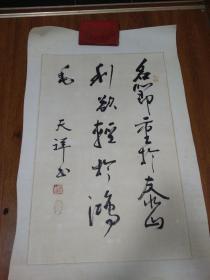 名節重於泰山
利欲輕於鴻
毛 天祥书